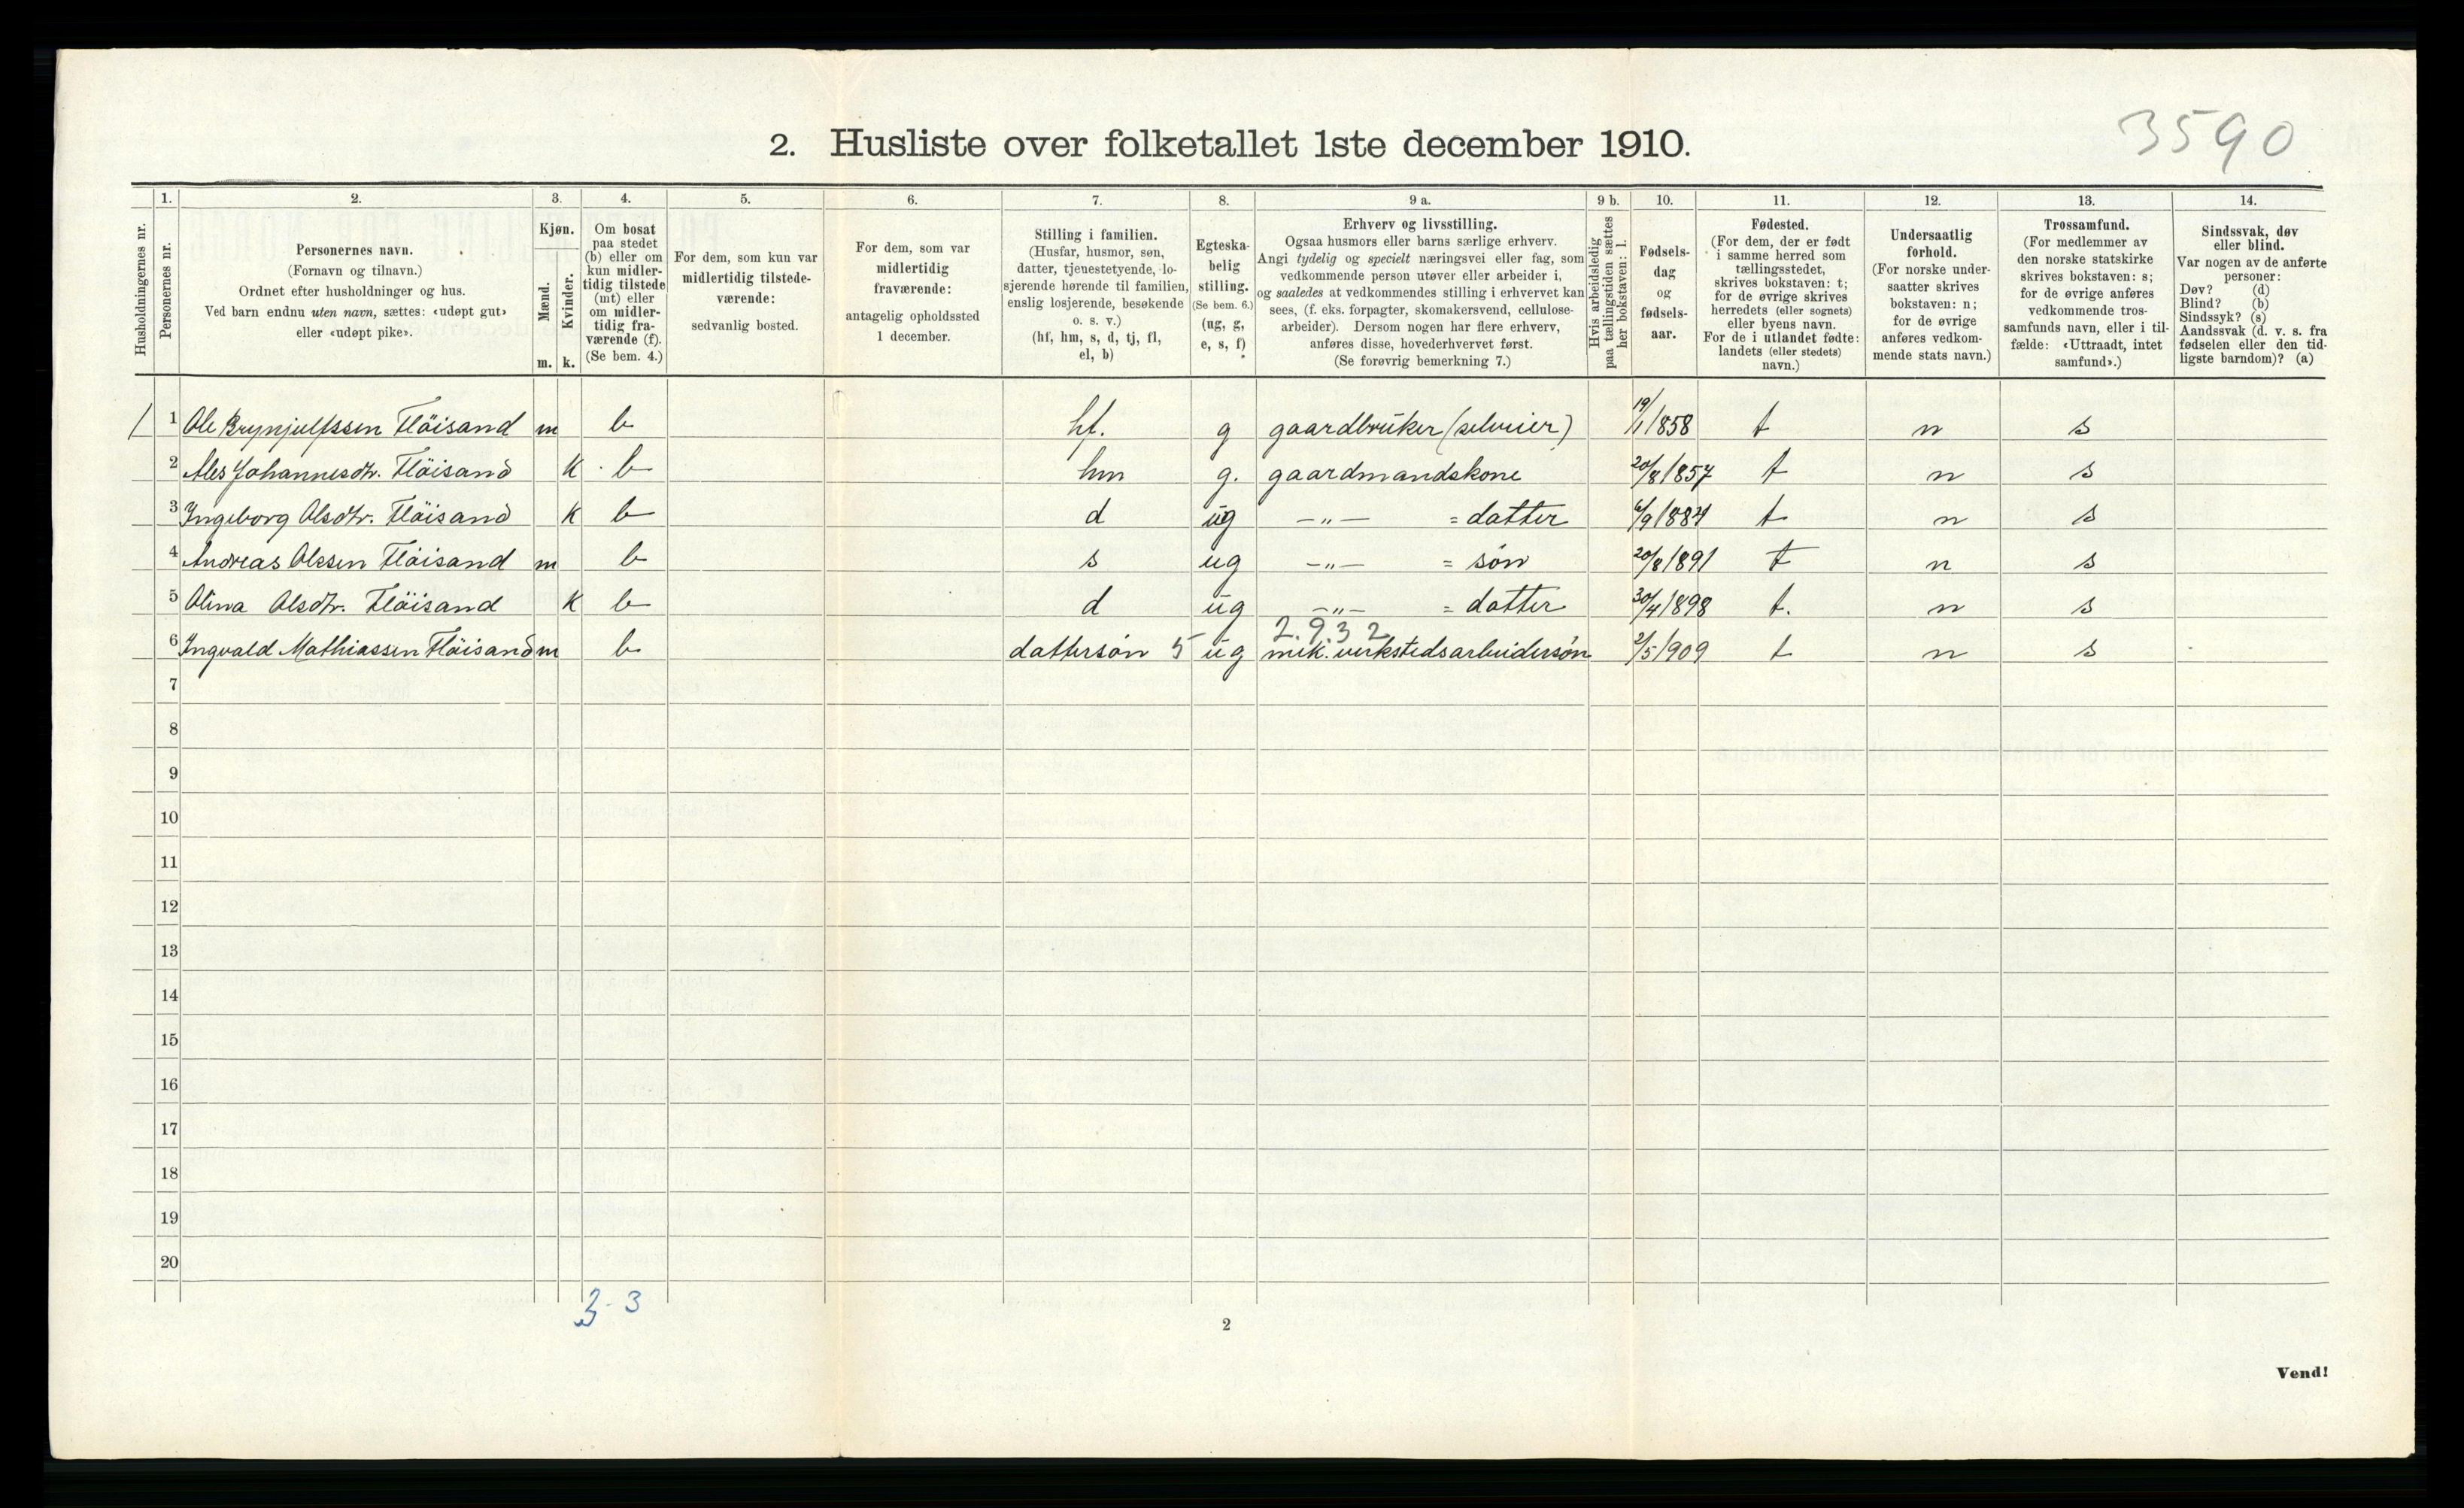 3590
2. Husliste over folketallet 1ste december 1910.
Husholdningernes nr.
1. Personernes nr.
2. Personernes navn.
(Fornavn og tilnavn.)
Ordnet efter husholdninger og hus.
Ved barn endnu uten navn, sættes: «udøpt gut»
eller «udøpt pike».
3. Kjøn.
Mænd. m.
Kvinder. k.
4. Om bosat
paa stedet
(b) eller om
kun midler-
tidig tilstede
(mt) eller
om midler-
tidig fra-
værende (f).
(Se bem. 4.)
5. For dem, som kun var
midlertidig tilstede-
værende:
sedvanlig bosted.
6. For dem, som var
midlertidig
fraværende:
antagelig opholdssted
1 december.
7. Stilling i familien.
(Husfar, husmor, søn,
datter, tjenestetyende, lo-
sjerende hørende til familien,
enslig losjerende, besøkende
o. s. v.)
(hf, hm, s, d, tj, fl,
el, b)
8. Egteska-
belig
stilling.
(Se bem. 6.)
(ug, g,
e, s, f)
9 a. Erhverv og livsstilling.
Ogsaa husmors eller barns særlige erhverv.
Angi tydelig og specielt næringsvei eller fag, som
vedkommende person utøver eller arbeider i,
og saaledes at vedkommendes stilling i erhvervet kan
sees, (f. eks. forpagter, skomakersvend, cellulose-
arbeider). Dersom nogen har flere erhverv,
anføres disse, hovederhvervet først.
(Se forøvrig bemerkning 7.)
9 b. Hvis arbeidsledig
paa tællingstiden sættes
her bokstaven: l.
10. Fødsels-
dag
og
fødsels-
aar.
11. Fødested.
(For dem, der er født
i samme herred som
tællingsstedet,
skrives bokstaven: t;
for de øvrige skrives
herredets (eller sognets)
eller byens navn.
For de i utlandet fødte:
landets (eller stedets)
navn.)
12. Undersaatlig
forhold.
(For norske under-
saatter skrives
bokstaven: n;
for de øvrige
anføres vedkom-
mende stats navn.)
13. Trossamfund.
(For medlemmer av
den norske statskirke
skrives bokstaven: s;
for de øvrige anføres
vedkommende tros-
samfunds navn, eller i til-
fælde: «Uttraadt, intet
samfund».)
14. Sindssvak, døv
eller blind.
Var nogen av de anførte
personer:
Døv? (d)
Blind? (b)
Sindssyk? (s)
Aandssvak (d. v. s. fra
fødselen eller den tid-
ligste barndom)? (a)
1 Ole Brynjulfssen Fläisand m b hf. g gaardbruker (selveier) 19/1 1858 t n s
2 Ales Johannesdtr. Fläisand K b hm g. gaardmandskone 20/8 1857 t n s
3 Ingeborg Olsdtr. Fläisand K b d ug -„- = datter 6/9 1884 t n s
4 Andreas Olssen Fläisand m b s ug -„- = søn 20/8 1891 t n s
5 Olina Olsdtr. Fläisand K b d ug -„- = datter 30/4 1898 t. n s
2.9.32
6 Ingvald Mathiassen Fläisand m b dattersøn 5 ug mek. verkstedsarbeidersøn 2/5 1909 t n s
7
8
9
10
11
12
13
14
15
16
17
18
19
20
3-3
2
Vend!